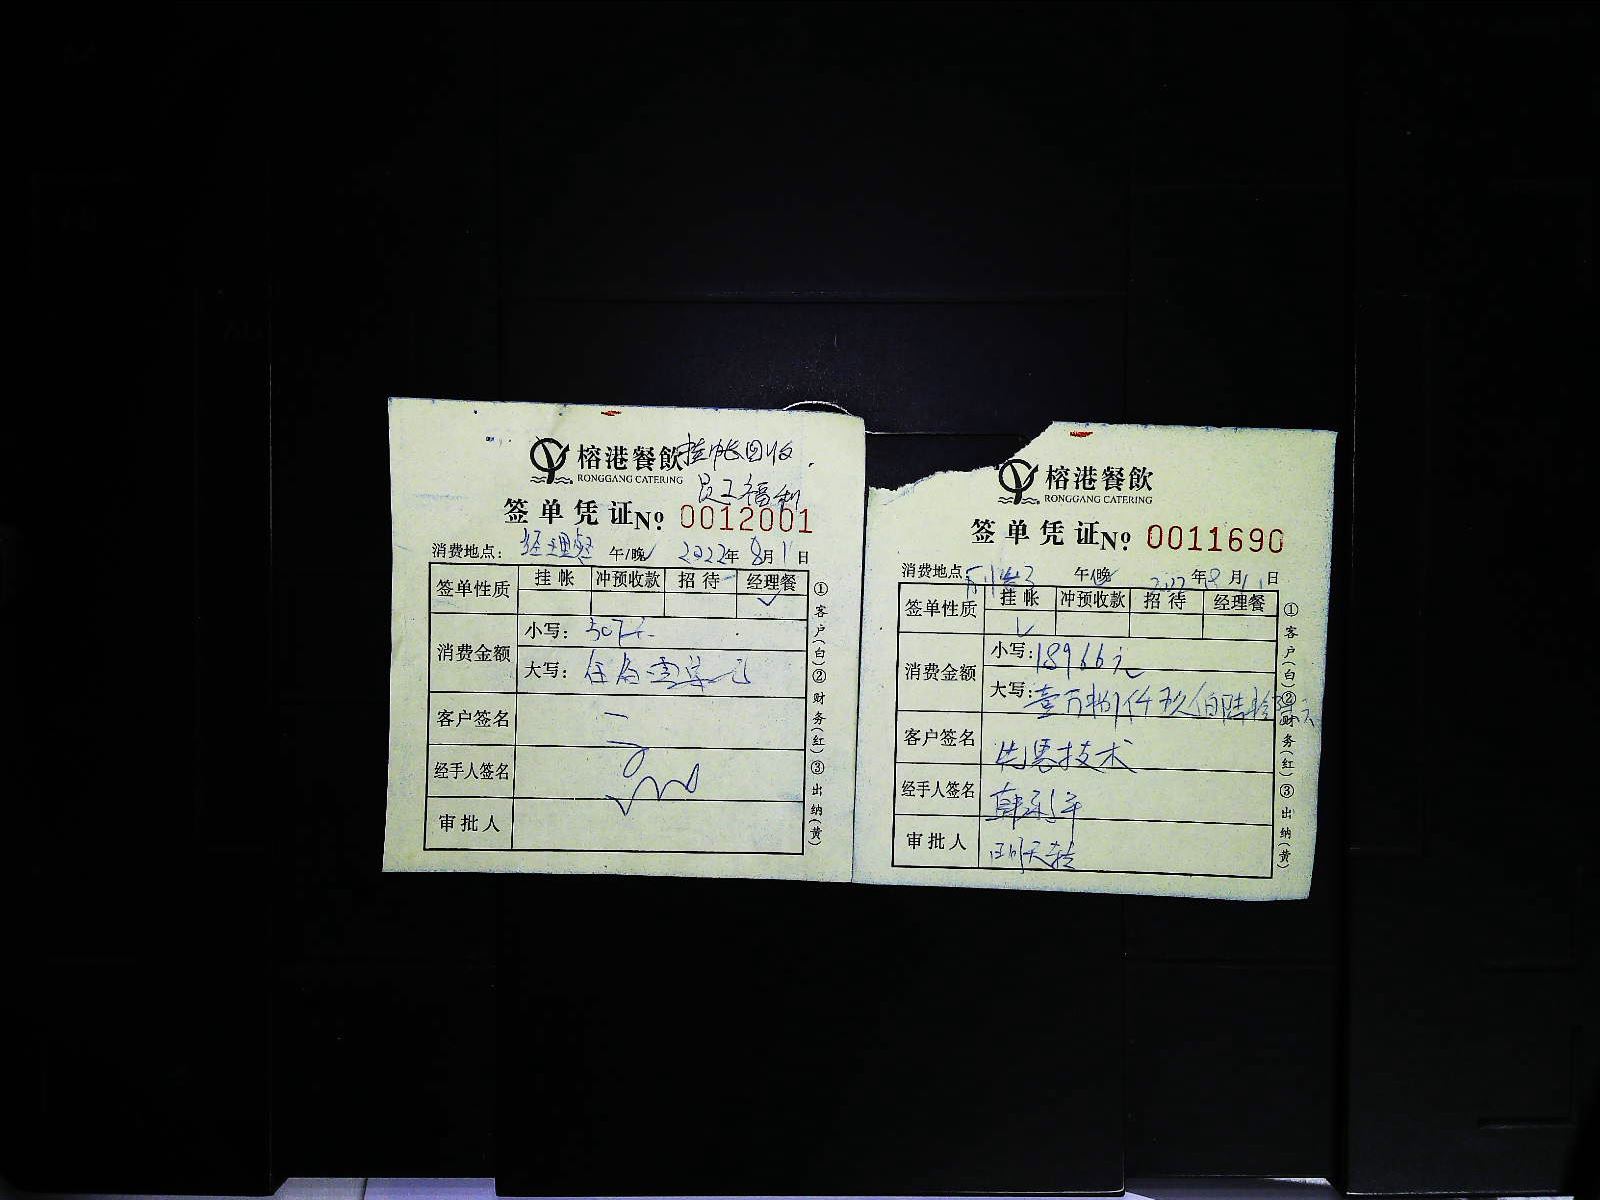 榕港餐飲 挂帐回收
RONGGANG CATERING
员工福利
签单凭证 No 0012001
消费地点: 经理餐 午/晚✓ 2022年8月1日
签单性质 挂帐 冲预收款 招待 经理餐
✓
消费金额
小写: 507元
大写: 伍佰零柒元
客户签名
经手人签名
审批人
①客户(白)②财务(红)③出纳(黄)
榕港餐飲
RONGGANG CATERING
签单凭证 No 0011690
消费地点 午/晚 2022年8月11日
签单性质 挂帐 冲预收款 招待 经理餐
✓
消费金额
小写: 18966元
大写: 壹万捌仟玖佰陆拾陆元
客户签名 技术
经手人签名
审批人
①客户(白)②财务(红)③出纳(黄)